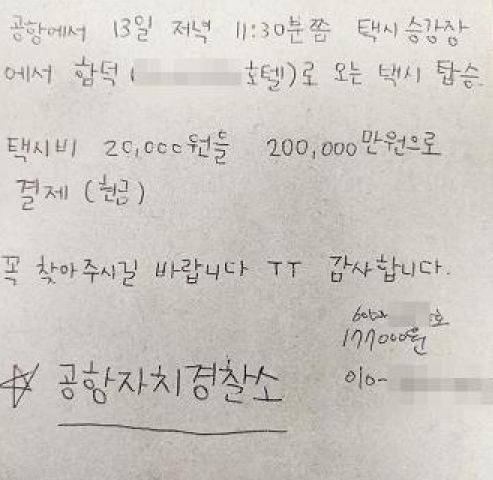 공항에서 13일 저녁 11:30분쯤 택시승강장
에서 함덕 ( 호텔)로 오는 택시 탑승.
택시비 20,000원을 200,000만원으로
결제 (현금)
꼭 찾아주시길 바랍니다 ㅠㅠ 감사합니다.
호
177000원
☆ 공항자치경찰소
010-